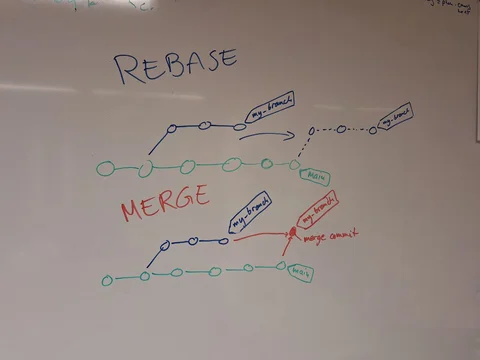 REBASE
my-branch
my-branch
main
MERGE
my-branch
my-branch
merge commit
main